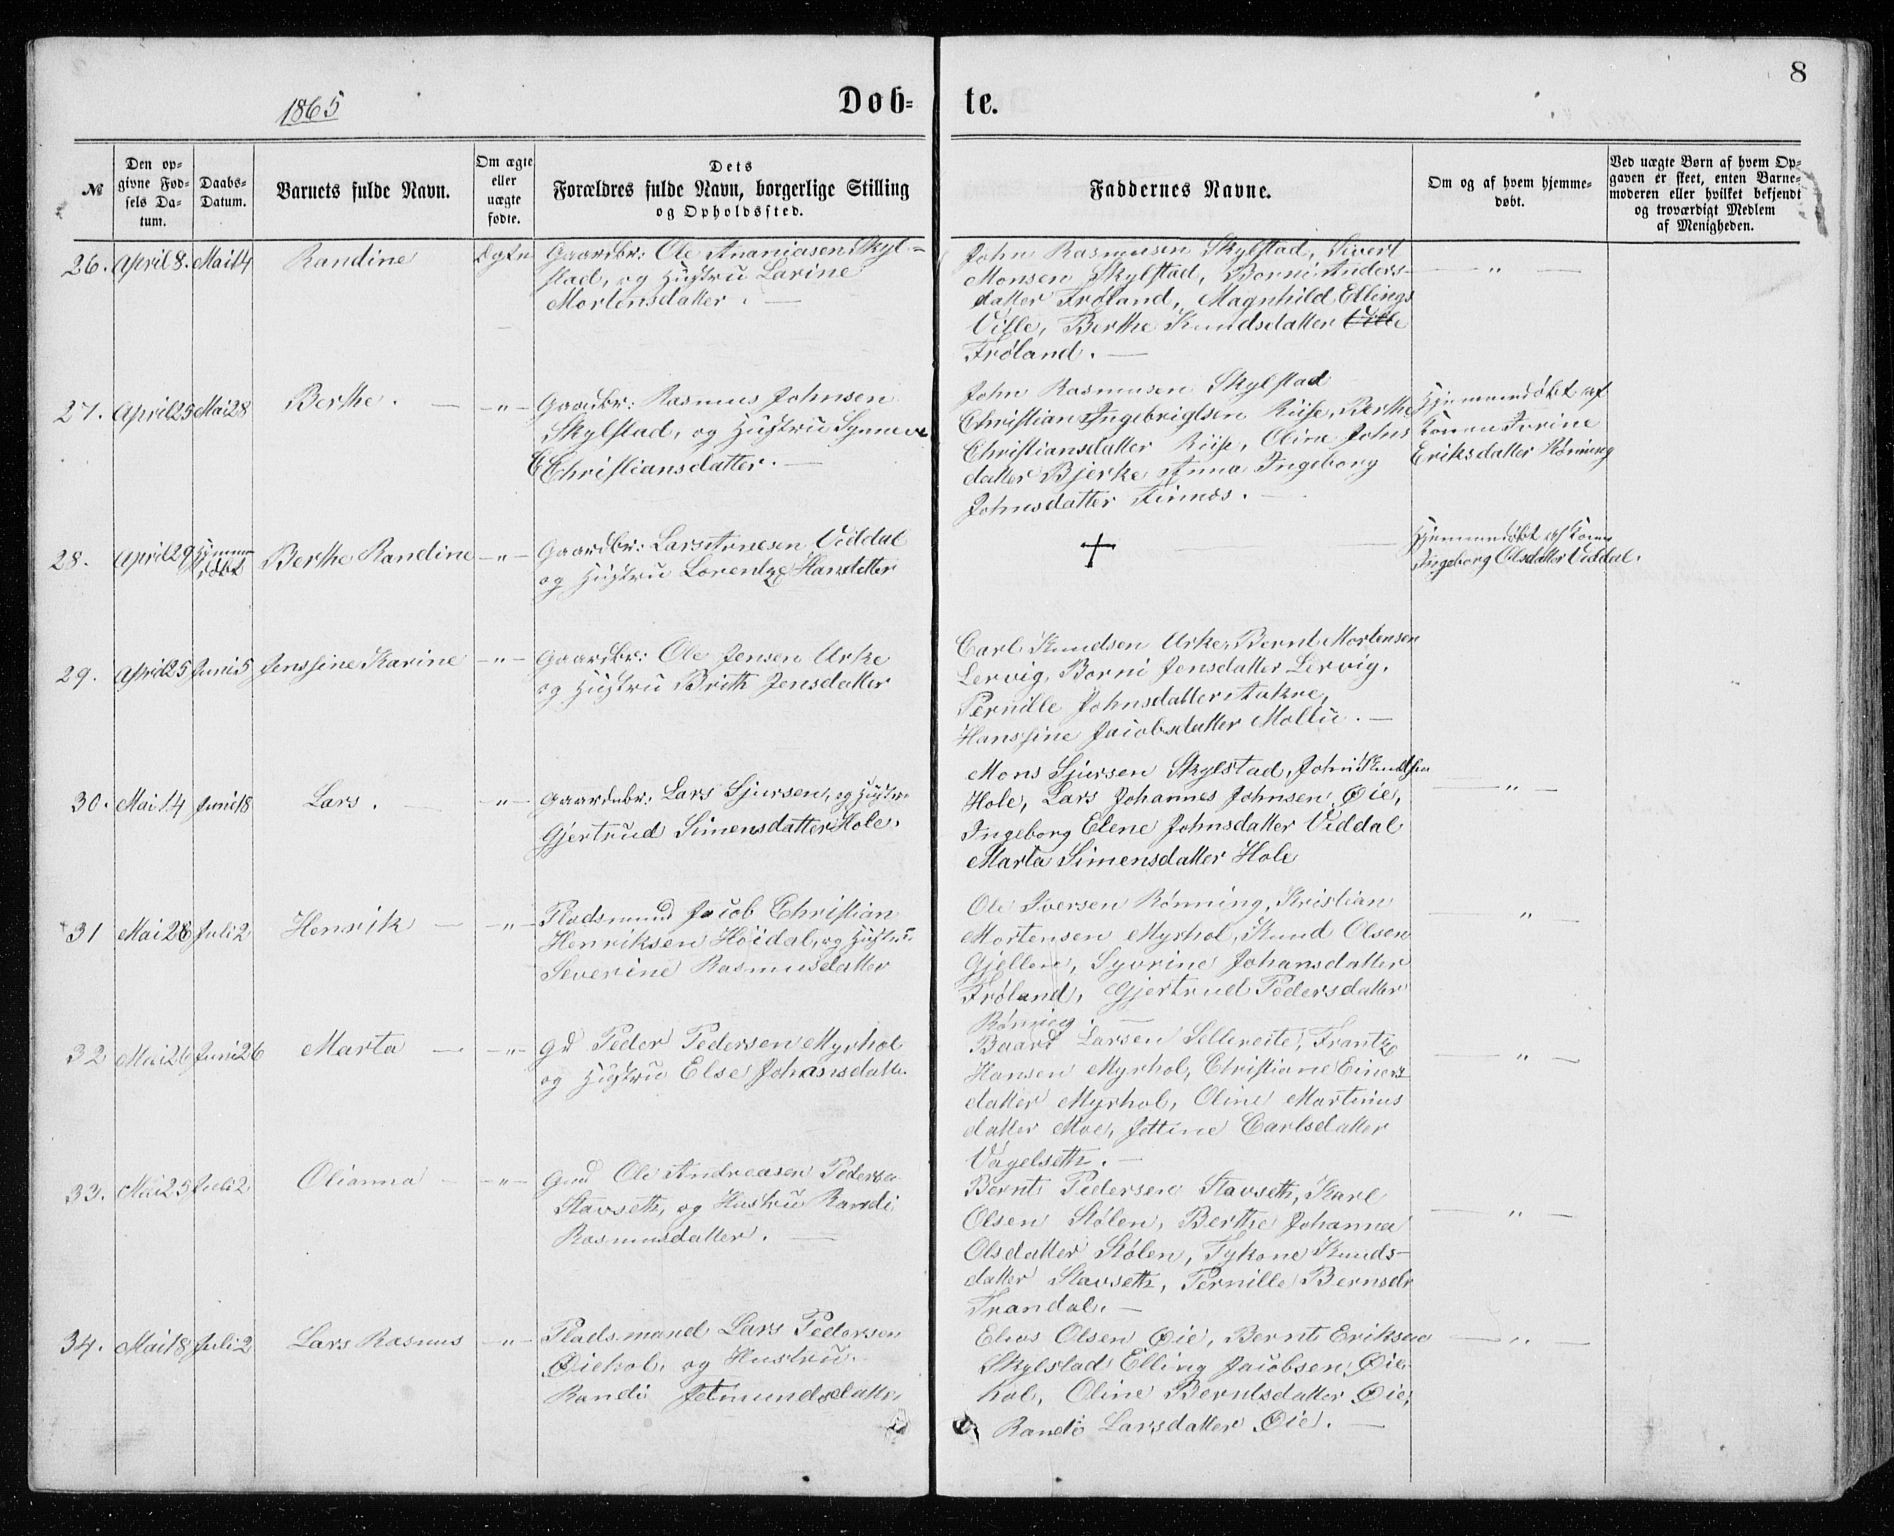 8
1865
Døb- te.
№
Den op-
givne Fød-
sels Da-
tum.
Daabs-
Datum.
Barnets fulde Navn.
Om ægte
eller
uægte
fødte.
Dets
Forældres fulde Navn, borgerlige Stilling
og Opholdssted.
Faddernes Navne.
Om og af hvem hjemme-
døbt.
Ved uægte Børn af hvem Op-
gaven er skeet, enten Barne-
moderen eller hvilket bekjendt
og troværdigt Medlem
af Menigheden.
26. April 8. Mai 14 Randine Egte
Gaardbr: Ole Ananiasen Skyl-
stad, og Hustru Larine
Mortensdatter. —
John Rasmusen Skylstad, Sivert
Monsen Skylstad, Borni Anders-
datter Frøland, Magnhild Ellings
Ville, Berthe Knudsdatter Ville
Frøland. —
— " —
27. April 25 Mai 28 Berthe. — — " —
Gaardbr: Rasmus Johnsen
Skylstad, og Hustru Synneve
Christiansdatter. —
John Rasmusen Skylstad
Christian Ingebrigtsen Riise, Berthe
Christiansdatter Riise, Oline Johns
datter Bjerke Anna Ingeborg
Johnsdatter Finnes. —
Hjemmedøbt af
Konen Ivrine
Eriksdatter Rønning
28. April 29 Hjemme
døbt Berthe Randine — " —
Gaardbr: Lars Arnesen Viddal
og Hustru Lorentze Hansdatter
+ —
Hjemmedøbt af Kone
Ingeborg Olsdatter Viddal.
29. April 25 Juni 5 Jenssine Karine — " —
Gaardbr: Ole Jensen Urke
og Hustru Brith Jensdatter
Carl Knudsen Urke, Bernt Mortensen
Lervig, Borni Jensdatter Lervig,
Pernille Johnsdatter Aakre,
Hanssine Jacobsdatter Mollu. —
30. Mai 14 Juni 18 Lars. — — " —
Gaardbr: Lars Sjursen, og Hustru
Gjertrud Simensdatter Hole.
Mons Sjursen Skylstad, John Knudsen
Hole, Lars Johannes Johnsen Øie,
Ingeborg Elene Johnsdatter Viddal
Marta Simensdatter Hole
— " —
31 Mai 28 Juli 2 Henrik — — " —
Pladsmand Jacob Christian
Henriksen Høidal, og Hustru
Severine Rasmusdatter
Ole Iversen Rønning, Kristian
Mortensen Myrhol, Knud Olsen
Gjellen, Syvrine Johansdatter
Frøland, Gjertrud Pedersdatter
Rønning. —
— " —
32 Mai 26 Juni 26 Marta — — " —
Gd Peder Pedersen Myrhol
og Hustru Else Johansdatter
Baard Larsen Sellereite, Frantz
Hansen Myrhol, Christiane Einers
datter Myrhol, Oline Martinus
datter Moe, Jettine Carlsdatter
Vagelseth. —
— " —
33. Mai 25 Juli 2 Olianna — — " —
Gmd Ole Andreasen Pedersen
Stavseth, og Hustru Randi
Rasmusdatter. —
Bernt Pedersen Stavseth, Karl
Olsen Stølen, Berthe Johanna
Olsdatter Stølen, Tykone Knuds-
datter Stavseth, Pernille Bernsdr
Trandal. —
— " —
34. Mai 18 Juli 2 Lars Rasmus — " —
Pladsmand Lars Pedersen
Øiehol, og Hustru
Randi Jetmundsdatter
Elias Olsen Øie, Bernt Eriksen
Skylstad Elling Jacobsen Øie-
hol, Oline Berntsdatter Øie,
Randi Larsdatter Øie. —
— " —